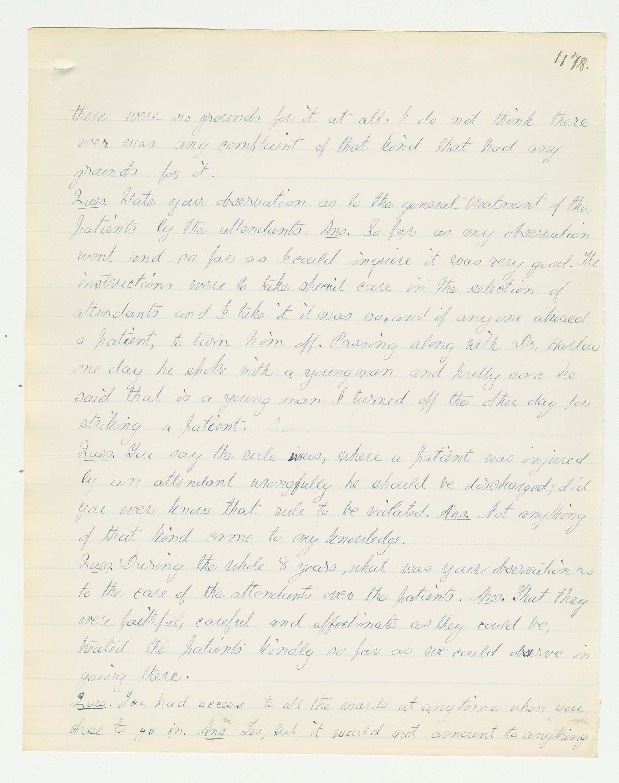 1178.
there were no grounds for it at all. I do not think there
ever was any complaint of that kind that had any
grounds for it.
Ques. State your observation as to the general treatment of the
patients by the attendants. Ans. So far as my observation
went and so far as I could inquire it was very good. The
instructions were to take special care in the selection of
attendants and I take it it was so, and if anyone abused
a patient, to turn him off. Passing along with Dr.
one day he spoke with a young man and pretty soon he
said that is a young man I turned off the other day for
striking a patient.
Ques. You say the rule was, where a patient was injured
by an attendant wrongfully he should be discharged; did
you ever know that rule to be violated. Ans. Not anything
of that kind came to my knowledge.
Ques. During the whole 8 years, what was your observation as
to the care of the attendants over the patients. Ans. That they
were faithful, careful and affectionate as they could be,
treated the patients kindly so far as we could observe in
going there.
Ques. You had access to all the wards at anytime when you
chose to go in. Ans. Yes, but it would not amount to anything